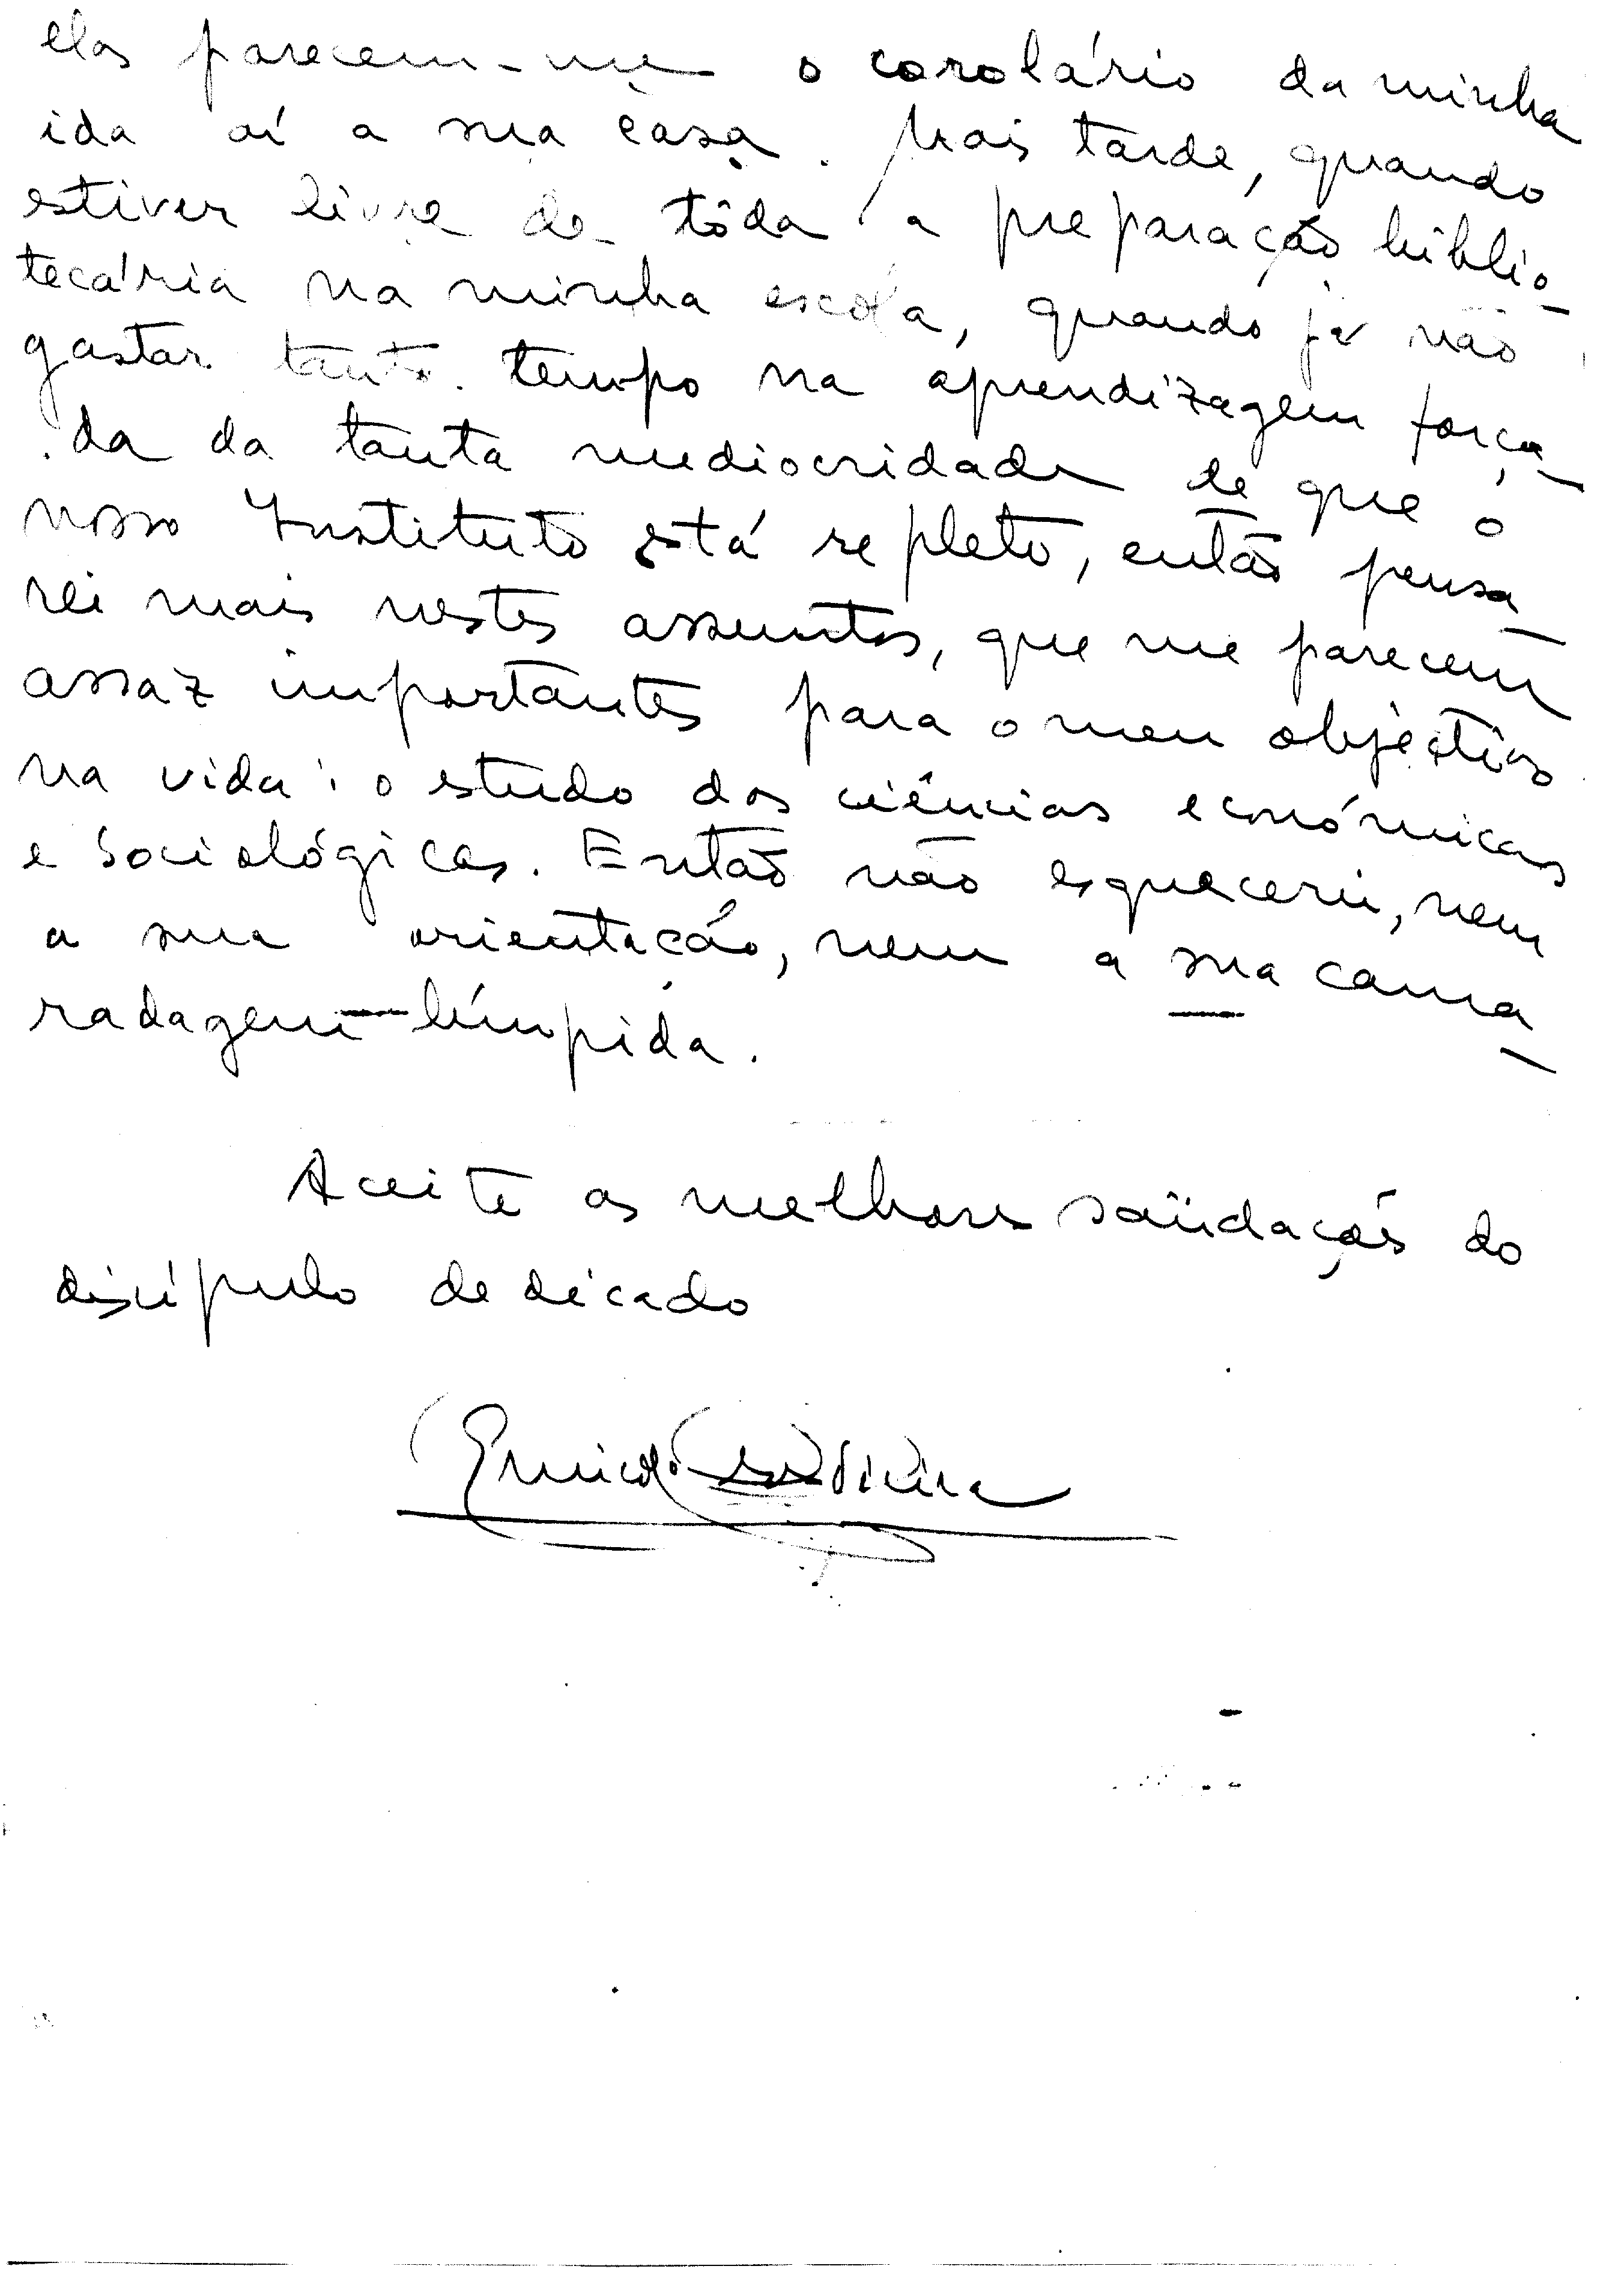 elas parecem-me o corolário da minha
ida aí a sua casa. Mais tarde, quando
estiver livre de tôda a preparação biblio-
tecária na minha escola, quando já não
gastar tanto tempo na aprendizagem força-
da da tanta mediocridade de que o
nosso Instituto está repleto, então pensa-
rei mais nestes assuntos, que me parecem
assaz importantes para o meu objectivo
na vida: o estudo das ciências económicas
e sociológicas. Então não esquecerei, nem
a sua orientação, nem a sua cama-
radagem límpida.
Aceite as melhores saüdações do
discípulo dedicado